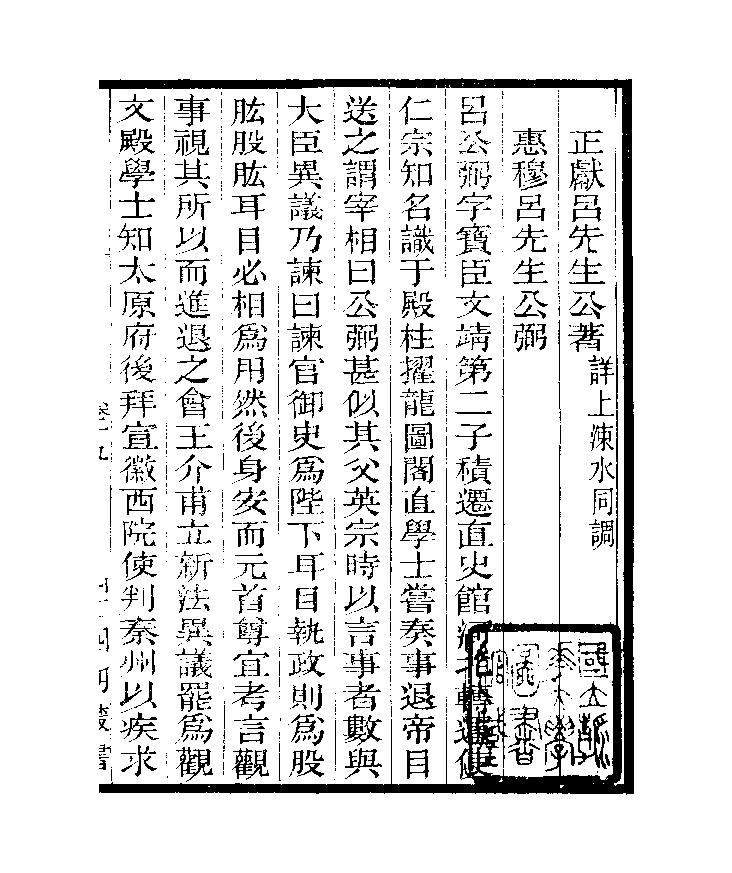 正獻呂先生公著詳上涑水同調
惠穆呂先生公弼
呂公弼字寶臣文靖第二子積遷直史館河北轉運使
仁宗知名識于殿柱擢龍圖閣直學士嘗奏事退帝目
送之謂宰相曰公弼甚似其父英宗時以言事者數與
大臣異議乃諫曰諫官御史爲陛下耳目執政則爲股
肱股肱耳目必相爲用然後身安而元首尊宜考言觀
事視其所以而進退之會王介甫立新法異議罷爲觀
文殿學士知太原府後拜宣徽西院使判秦州以疾求
四明叢書